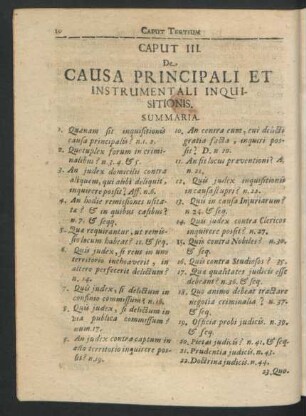 10 CAPUT TERTIUM
CAPUT III.
De
CAUSA PRINCIPALI ET
INSTRUMENTALI INQUI-
SITIONIS,
SUMMARIA.
1. Quænam sit inquisitionis
causa principalis? n. 1. 2.
2. Quotuplex forum in crimi-
nalibus? n. 3. 4. & 5.
3. An judex domicilii contra
aliquem, qui alibi deliquit,
inquirere possit? Aff. n. 6.
4. An hodie remissiones usita-
tæ? & in quibus casibus?
n. 7. & seqq.
5. Quæ requirantur, ut remis-
sio locum habeat? 11. & seq.
6. Quis judex, si reus in uno
territorio inchoaverit, in
altero perfecerit delictum?
n. 14.
7. Quis judex, si delictum in
confinio commissum? n. 16.
8. Quis judex, si delictum in
via publica commissum?
num. 17.
9. An judex contra captum in
alio territorio inquirere pos-
sit? n. 19.
10. An contra eum, cui delicti
gratia facta, inquiri pos-
sit? D. n. 20.
11. An sit locus preventioni? A.
n. 21.
12. Quis judex inquisitionis
in causa stupri? n. 22.
13. Quis in causa Injuriarum?
n. 24. & seq.
14. Quis judex contra Clericos
inquirere possit? n. 27.
15. Quis contra Nobiles? n. 30.
& seq.
16. Quis contra Studiosos? n. 35.
17. Quæ qualitates judicis esse
debeant? n. 36. & seq.
18. Quo animo debeat tractare
negotia criminalia? n. 37.
& seq.
19. Officia probi judicis. n. 39.
& seq.
20. Pietas judicis? n. 41. & seq.
21. Prudentia judicis. n. 43.
22. Doctrina judicis. n. 44.
23. Quo-